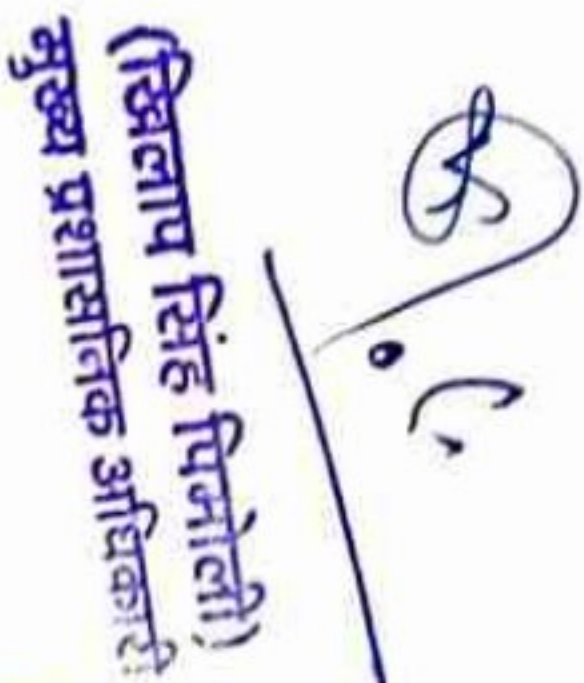 (खिलाप सिंह पिमोली)
मुख्य प्रशासनिक अधिकारी